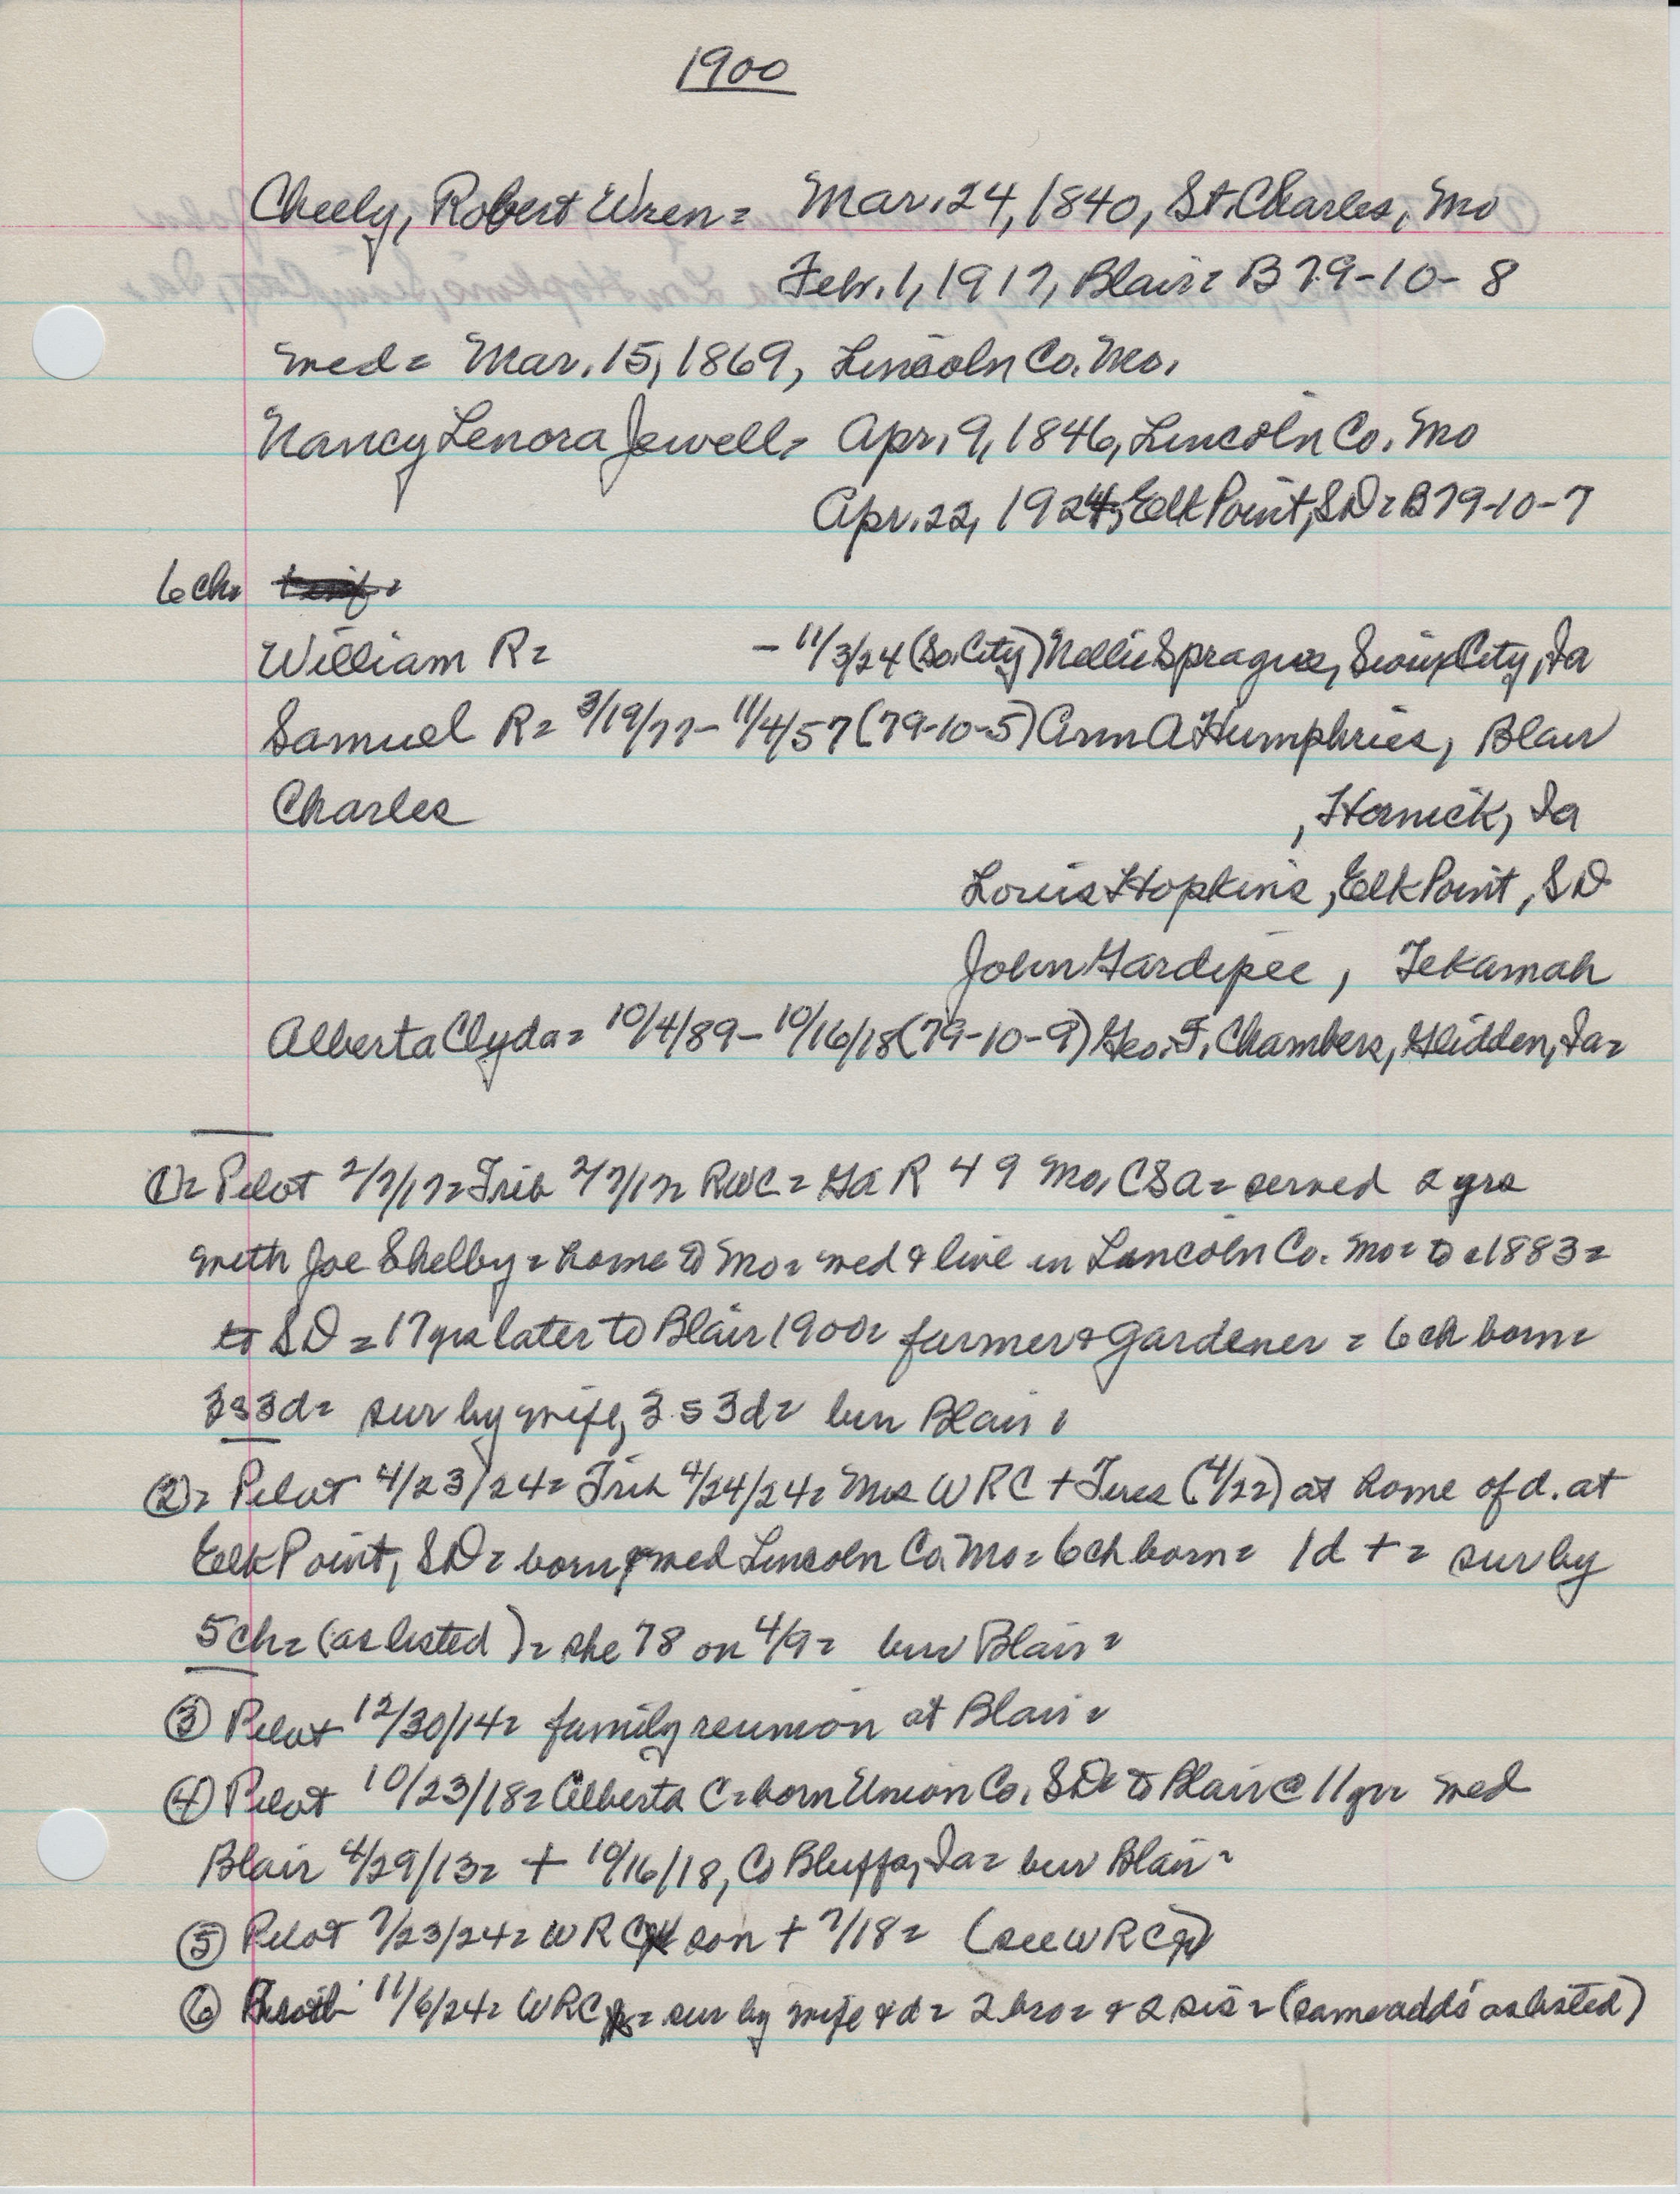 1900
Cheely, Robert Wren = Mar. 24, 1840, St. Charles, Mo
Feb. 1, 1917, Blair = B 79-10-8
med = Mar. 15, 1869, Lincoln Co. Mo.
Nancy Lenora Jewell = Apr. 9, 1846, Lincoln Co. Mo
Apr. 22, 1924, Elk Point, SD = B 79-10-7
6 ch =
William R = - 11/3/24 (So. City) Nellie Sprague, Sioux City, Ia
Samuel R = 3/19/77 - 11/4/57 (79-10-5) Ann A Humphries, Blair
Charles , Hornick, Ia
Louis Hopkins, Elk Point, SD
John Gardipee, Tekamah
Alberta Clyda = 10/4/89 - 10/16/18 (79-10-9) Geo. F. Chambers, Glidden, Ia =
① = Pilot 2/7/17 = Trib 2/7/17 = RWC = GaR 49 Mo, CSA = served 2 yrs
with Joe Shelby = home to Mo = med & live in Lincoln Co. Mo = to 1883 =
to SD = 17 yrs later to Blair 1900 = farmer & gardener = 6 ch born =
3s 3d = sur by wife, 3 s 3d = bur Blair =
② = Pilot 4/23/24 = Trib 4/24/24 = Mrs WRC + Tues (4/22) at home of d. at
Elk Point, SD = born & med Lincoln Co Mo = 6 ch born = 1d + = sur by
5 ch = (as listed) = she 78 on 4/9 = bur Blair =
③ Pilot 12/30/14 = family reunion at Blair =
④ Pilot 10/23/18 = Alberta C = born Union Co. SD = to Blair @ 11 yr = med
Blair 4/29/13 = + 10/16/18, Co Bluffs, Ia = bur Blair =
⑤ Pilot 7/23/24 = WRC son + 7/18 = (see WRC)
⑥ 11/6/24 = WRC = sur by wife & d = 2 bro = & 2 sis = (same adds as listed)